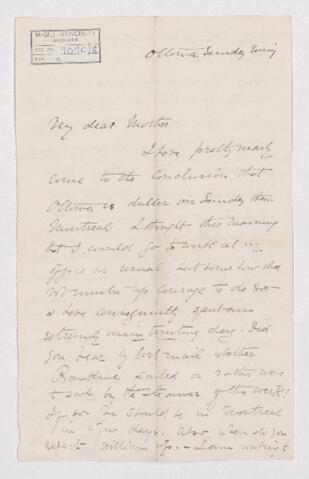 McGILL UNIVERSITY
ARCHIVES
ACC. NO.
REF.
Ottawa Sunday Evening
My dear Mother
I have pretty nearly
come to the conclusion that
Ottawa is duller on Sunday than
Montreal. I thought this morning
that I would go to work at my
office as usual, but somehow did
not muster up courage to do so
& have consequently spent an
extremely uninteresting day. Did
you hear by last mail whether
Rankine sailed or rather was
to sail by the steamer of this week?
If so he should be in Montreal
in a few days. Also, when do you
expect William up. - I am writing